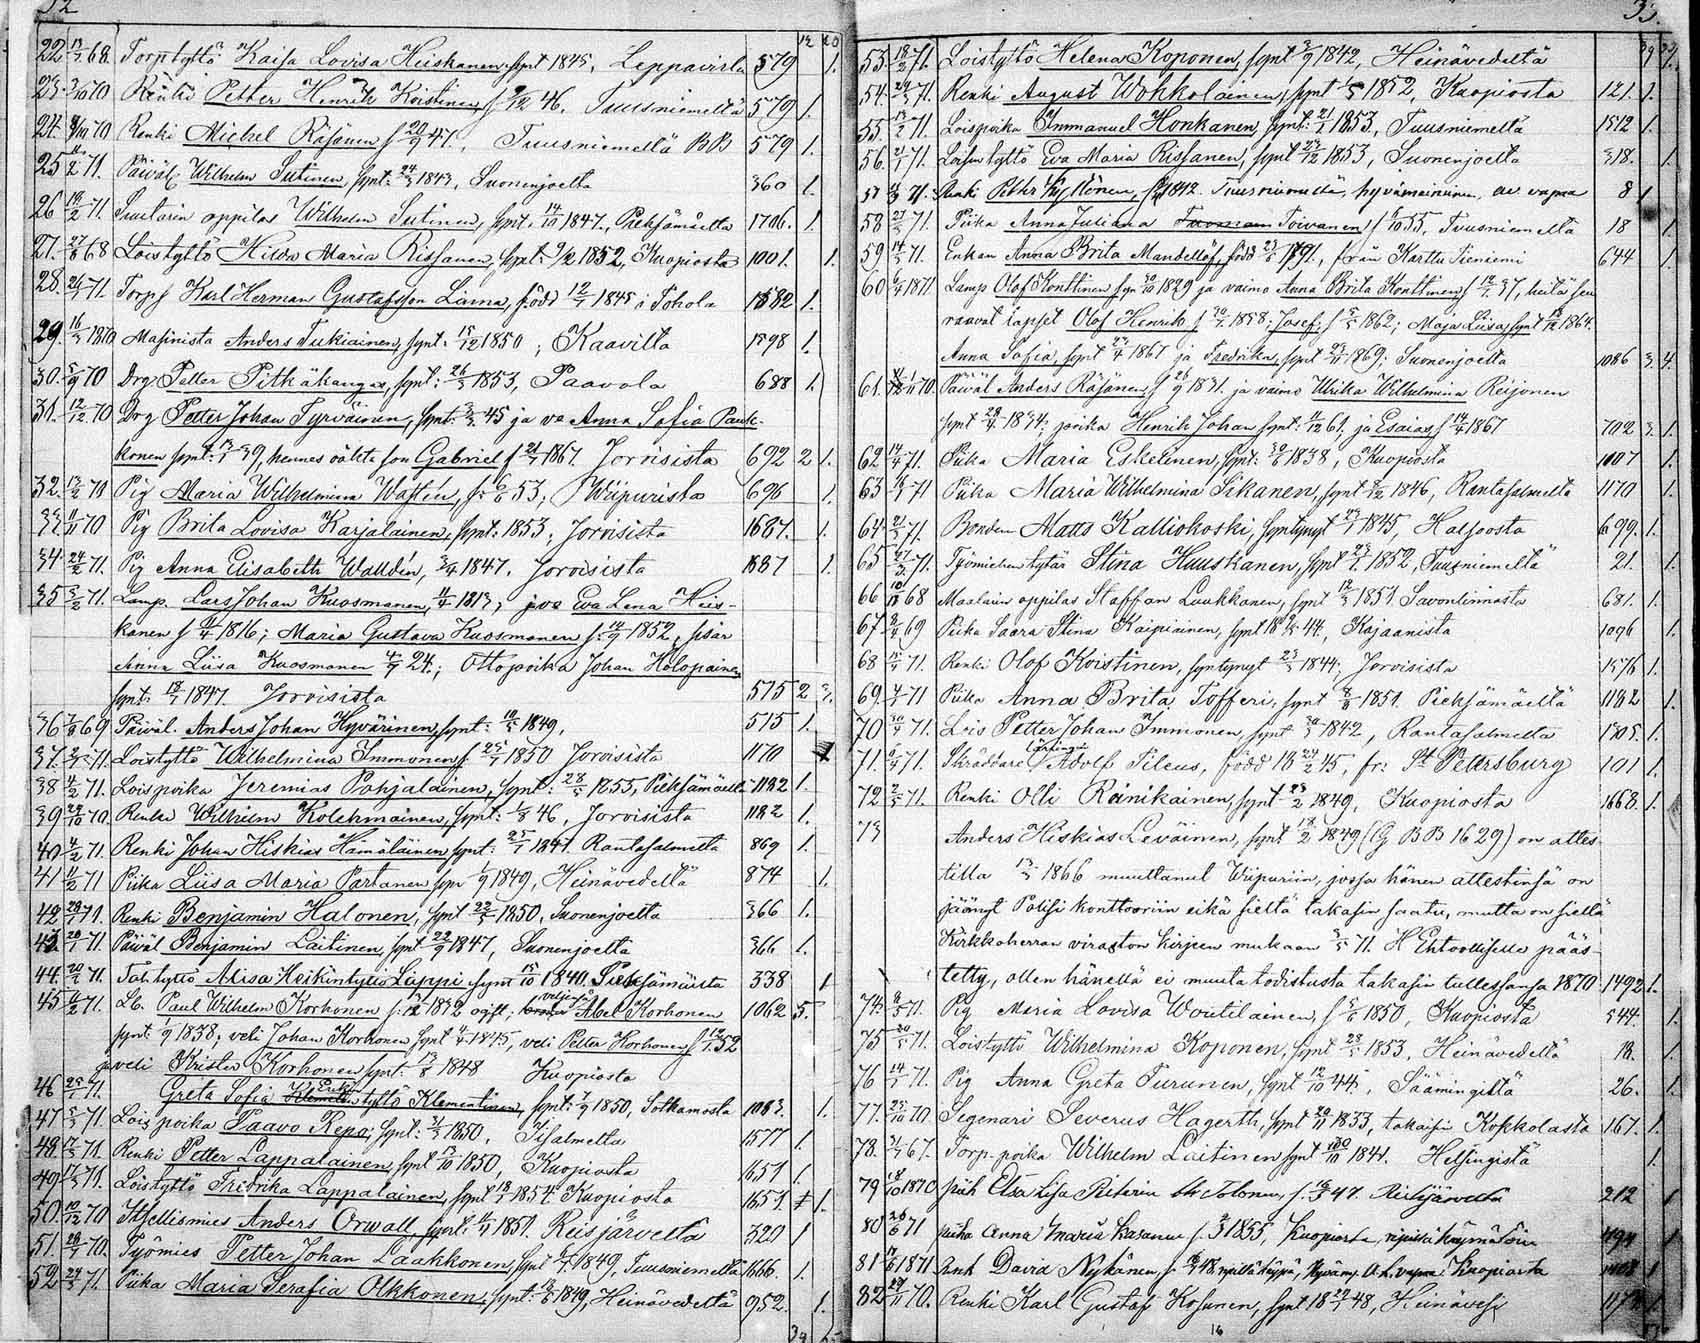 32
12 20
22 13/7 68. Torptyttö Kaisa Lovisa Heiskanen, synt 1845, Leppävirta 579 1.
23 3/10 70 Renki Petter Henrik Koistinen, f 9/12 46. Tuusniemeltä 579 1.
24. 8/10 70 Renki Michel Räsänen f 29/9 47. Tuusniemeltä BB 579 1.
25 11/2 71. Päiväl Wilhelm Sutinen, synt: 24/3 1843, Suonenjoelta 360 1.
26 19/2 71. Suutarin oppilas Wilhelm Sutinen, synt. 14/10 1847. Pieksämäelta 1706. 1.
27. 27/8 68 Loistyttö Hilda Maria Rissanen, synt: 9/12 1852, Kuopiosta 1001. 1.
28. 24/1 71. Torp Karl Herman Gustafsson Linna, född 12/7 1845 i Tohola 1582 1.
29. 16/5 1870 Masinista Anders Tukiainen, synt. 15/12 1850; Kaavilta 1598 1.
30. 5/9 70 Drg Petter Pitkäkangas, synt: 26/3 1853, Paavola 688 1.
31. 12/12 70 Drg Petter Johan Tyrväinen, synt: 3/3 45 ja va Anna Sofia Pauk-
konen synt: 13/1 39, hennes oäkta son Gabriel f 24/7 1867. Jorvisista 692 2 1.
32. 13/2 70 Pig Maria Wilhelmina Wasten, f: 53; Wiipurista 696 1.
33 11/11 70 Pig Brita Lovisa Karjalainen, synt: 1853; Jorvisista 1687. 1.
34. 24/2 71. Pig Anna Elisabeth Walldén, 3/4 1847. Jorvisista 1687 1.
35 3/2 71. Lamp. Lars Johan Kuosmanen, 11/4 1813; ja va Eva Lena Heis-
kanen f 11/4 1816; Maria Gustava Kuosmanen f: 14/9 1852, sisar
Anna Liisa Kuosmanen 4/9 24.; Ottopoika Johan Holopainen
synt: 18/7 1847. Jorvisista 515 2 3.
36 7/8 69 Päiväl. Anders Johan Hyvärinen, synt: 10/5 1849. 515 1.
37. 2/2 71. Loistyttö Wilhelmina Immonen f. 25/7 1850 Jorvisista 1170
38 4/2 71. Loispoika Jeremias Pohjalainen, synt: 28/5 1855, Pieksämäelt 1182 1.
39 29/10 70. Renki Wilhelm Kolehmainen, synt: 1/8 46, Jorvisista 1182 1.
40 4/2 71. Renki Johan Hiskias Hämäläinen synt: 25/7 1841. Rantasalmelta 869 1.
41 11/2 71 Piika Liisa Maria Partanen syn 1/9 1849, Heinävedeltä 874 1.
42. 29/1 71. Renki Benjamin Halonen, synt 22/5 1850, Suonenjoelta 366 1.
43. 20/1 71. Päiväl Benjamin Laitinen, synt. 22/9 1847, Suonenjoelta 366 1.
44. 20/2 71. Tal:tyttö Alisa Heikintytto Lappi synt 15/10 1840. Pieksämäistä 338 1
45 11/2 71. Lb. Paul Wilhelm Korhonen f: 1832 ogift; veljensä Abel Korhonen 1062 5.
synt: 9 1838, veli Johan Korhonen synt 4/4 1845, veli Petter Korhonen f 12/1 52
ja veli Krister Korhonen synt: 13/8 1848 Kuopiosta
46 25/1 71. Greta Sofia Erik tyttö Klementinen, synt: 7/9 1850, Sotkamosta 1083. 1.
47 5/3 71. Loispoika Paavo Repo, synt: 3/3 1850, Iisalmelta 1577 1.
48. 17/2 71. Renki Petter Lappalainen, synt 17/10 1850, Kuopiosta 1657 1.
49. 17/3 71. Loistyttö Fredrika Lappalainen, synt 18/1 1854. Kuopiosta 1657 1.
50. 10/12 70 Itsellismies Anders Orwall, synt: 4/11 1851. Reisjärvelta 320 1
51. 28/7 70. Työmies Petter Johan Laakkonen, synt 5/7 1849, Tuusniemeltä 1666. 1.
52 24/3 71. Piika Maria Serafia Olkkonen, synt: 13/6 1849, Heinävedeltä 952. 1.
33.
53. 18/2 71. Loistyttö Helena Koponen, synt 3/9 1842, Heinävedeltä
54. 24/3 71. Renki August Wohkolainen, synt 1/5 1852, Kuopiosta 121. 1.
55 13/2 71. Loispoika Immanuel Honkanen, synt: 21/1 1853, Tuusniemeltä 1512 1.
56. 21/1 71. Loisen tyttö Eva Maria Rissanen, synt 23/12 1853, Suonenjoelta 318. 1.
57 71. Renki Petter Kyllönen, 1842. Tuusniemeltä, hyvämaininen, av. vapaa 8 1
58 27/3 71. Piika Anna Juliana Toivanen f 6/10 55, Tuusniemeltä 18 1
59 14/3 71. Enkan Anna Brita Mandellöf, född 23/6 1791, från Karttu Pieniemi 644 1.
60 6/4 1871 Lamp Olof Konttinen syn 30/10 1829 ja vaimo Anna Brita Konttinen f 12/7 37, heitä seu
raavat lapset Olof Henrik f 20/7 1858; Josef f 5/5 1862; Maja Liisa, synt 13/12 1864.
Anna Sofia, synt 23/4 1867 ja Fredrika, synt 23/11 1869; Suonenjoelta 1086 3. 4.
61. 11 70. Päiväl Anders Räsänen f 26/9 1831. ja vaimo Ulrika Wilhelmina Reijonen
synt 28/4 1834; poika Henrik Johan synt: 11/12 61. ja Esaias f 14/4 1867 702 3. 1.
62 14/4 71. Piika Maria Eskelinen, synt: 30/6 1838, Kuopiosta 1007 1.
63 16/4 71 Piika Maria Wilhelmina Sikanen, synt 8/12 1846, Rantasalmelta 1170 1.
64. 21/3 71. Bonden Matts Kalliokoski, syntynyt 23/1 1845, Halsoosta 699. 1.
65 27/3 71. Työmiehen tytär Stina Huuskanen, synt 23/1 1852, Tuusniemeltä 21. 1.
66 10/10 68 Maalarin oppilas Staffan Luukkanen, synt 12/3 1851. Savonlinnasta 681. 1.
67. 8/4 69 Piika Saara Stina Kaipiainen, synt 18 44, Kajaanista 1096 1.
68 15/4 71. Renki Olof Koistinen, syntynyt 23/3 1844; Jorvisista 1576 1.
69. 4/4 71 Piika Anna Brita Tofferi, synt 8/8 1851. Pieksämäeltä 1182 1.
70 30/4 71. Lois Petter Johan Immonen, synt 30/3 1842, Rantasalmelta 1505. 1.
71. 6/5 71. Skräddare Adolf Tileus, född 18 24/2 45, fr: St Petersburg 101 1.
72 2/5 71. Renki Olli Ronikainen, synt 23/2 1849. Kuopiosta 1668. 1.
73 Anders Hiskias Leväinen, synt 18/2 1849 (G BB 1629) on attes-
tilla 13/3 1866 muuttanut Wiipuriin, jossa hänen attestinsa on
jäänyt Polisi konttooriin eikä sieltä takasin saatu, mutta on siellä
Kirkkoherran viraston kirjeen mukaan 3/5 71. H Ehtoolliselle pääs-
tetty, ollen hänellä ei muuta todistusta takasin tullessansa 1870 1492 1.
74. 8/5 71. Pig Maria Lovisa Woutilainen, f 5/6 1850, Kuopiosta 544. 1.
75 20/5 71. Loistyttö Wilhelmina Koponen, synt 28/5 1853, Heinävedeltä 18. 1.
76 14/1 71. Pig Anna Greta Turunen, synt 12/10 44, Säämingistä 26. 1.
77. 25/10 70 Segenari Severus Hagerth, synt 20/11 1833, takaisin Kokkolasta 167. 1.
78. 3/3 67. Torp. poika Wilhelm Laitinen synt 30/10 1841. Helsingistä 1.
79 18/10 1870 piik Elsa Lisa Pietarin tr Tolonen, f. 16/3 47. Ristijärveltä 212 1
80 26/6 71 piika Anna Maria Kasanen f. 2/3 1855, Kuopiosta, ripillä käymätöin 494 1
81 17/6 1871 Renk David Nykänen, f. 48, ripillä käypä, hyväm. A.v. vapaa Kuopiosta 1
82 29/11 70. Renki Karl Gustaf Kosunen, synt 18 29/7 48, Heinävesi 117 1.
16